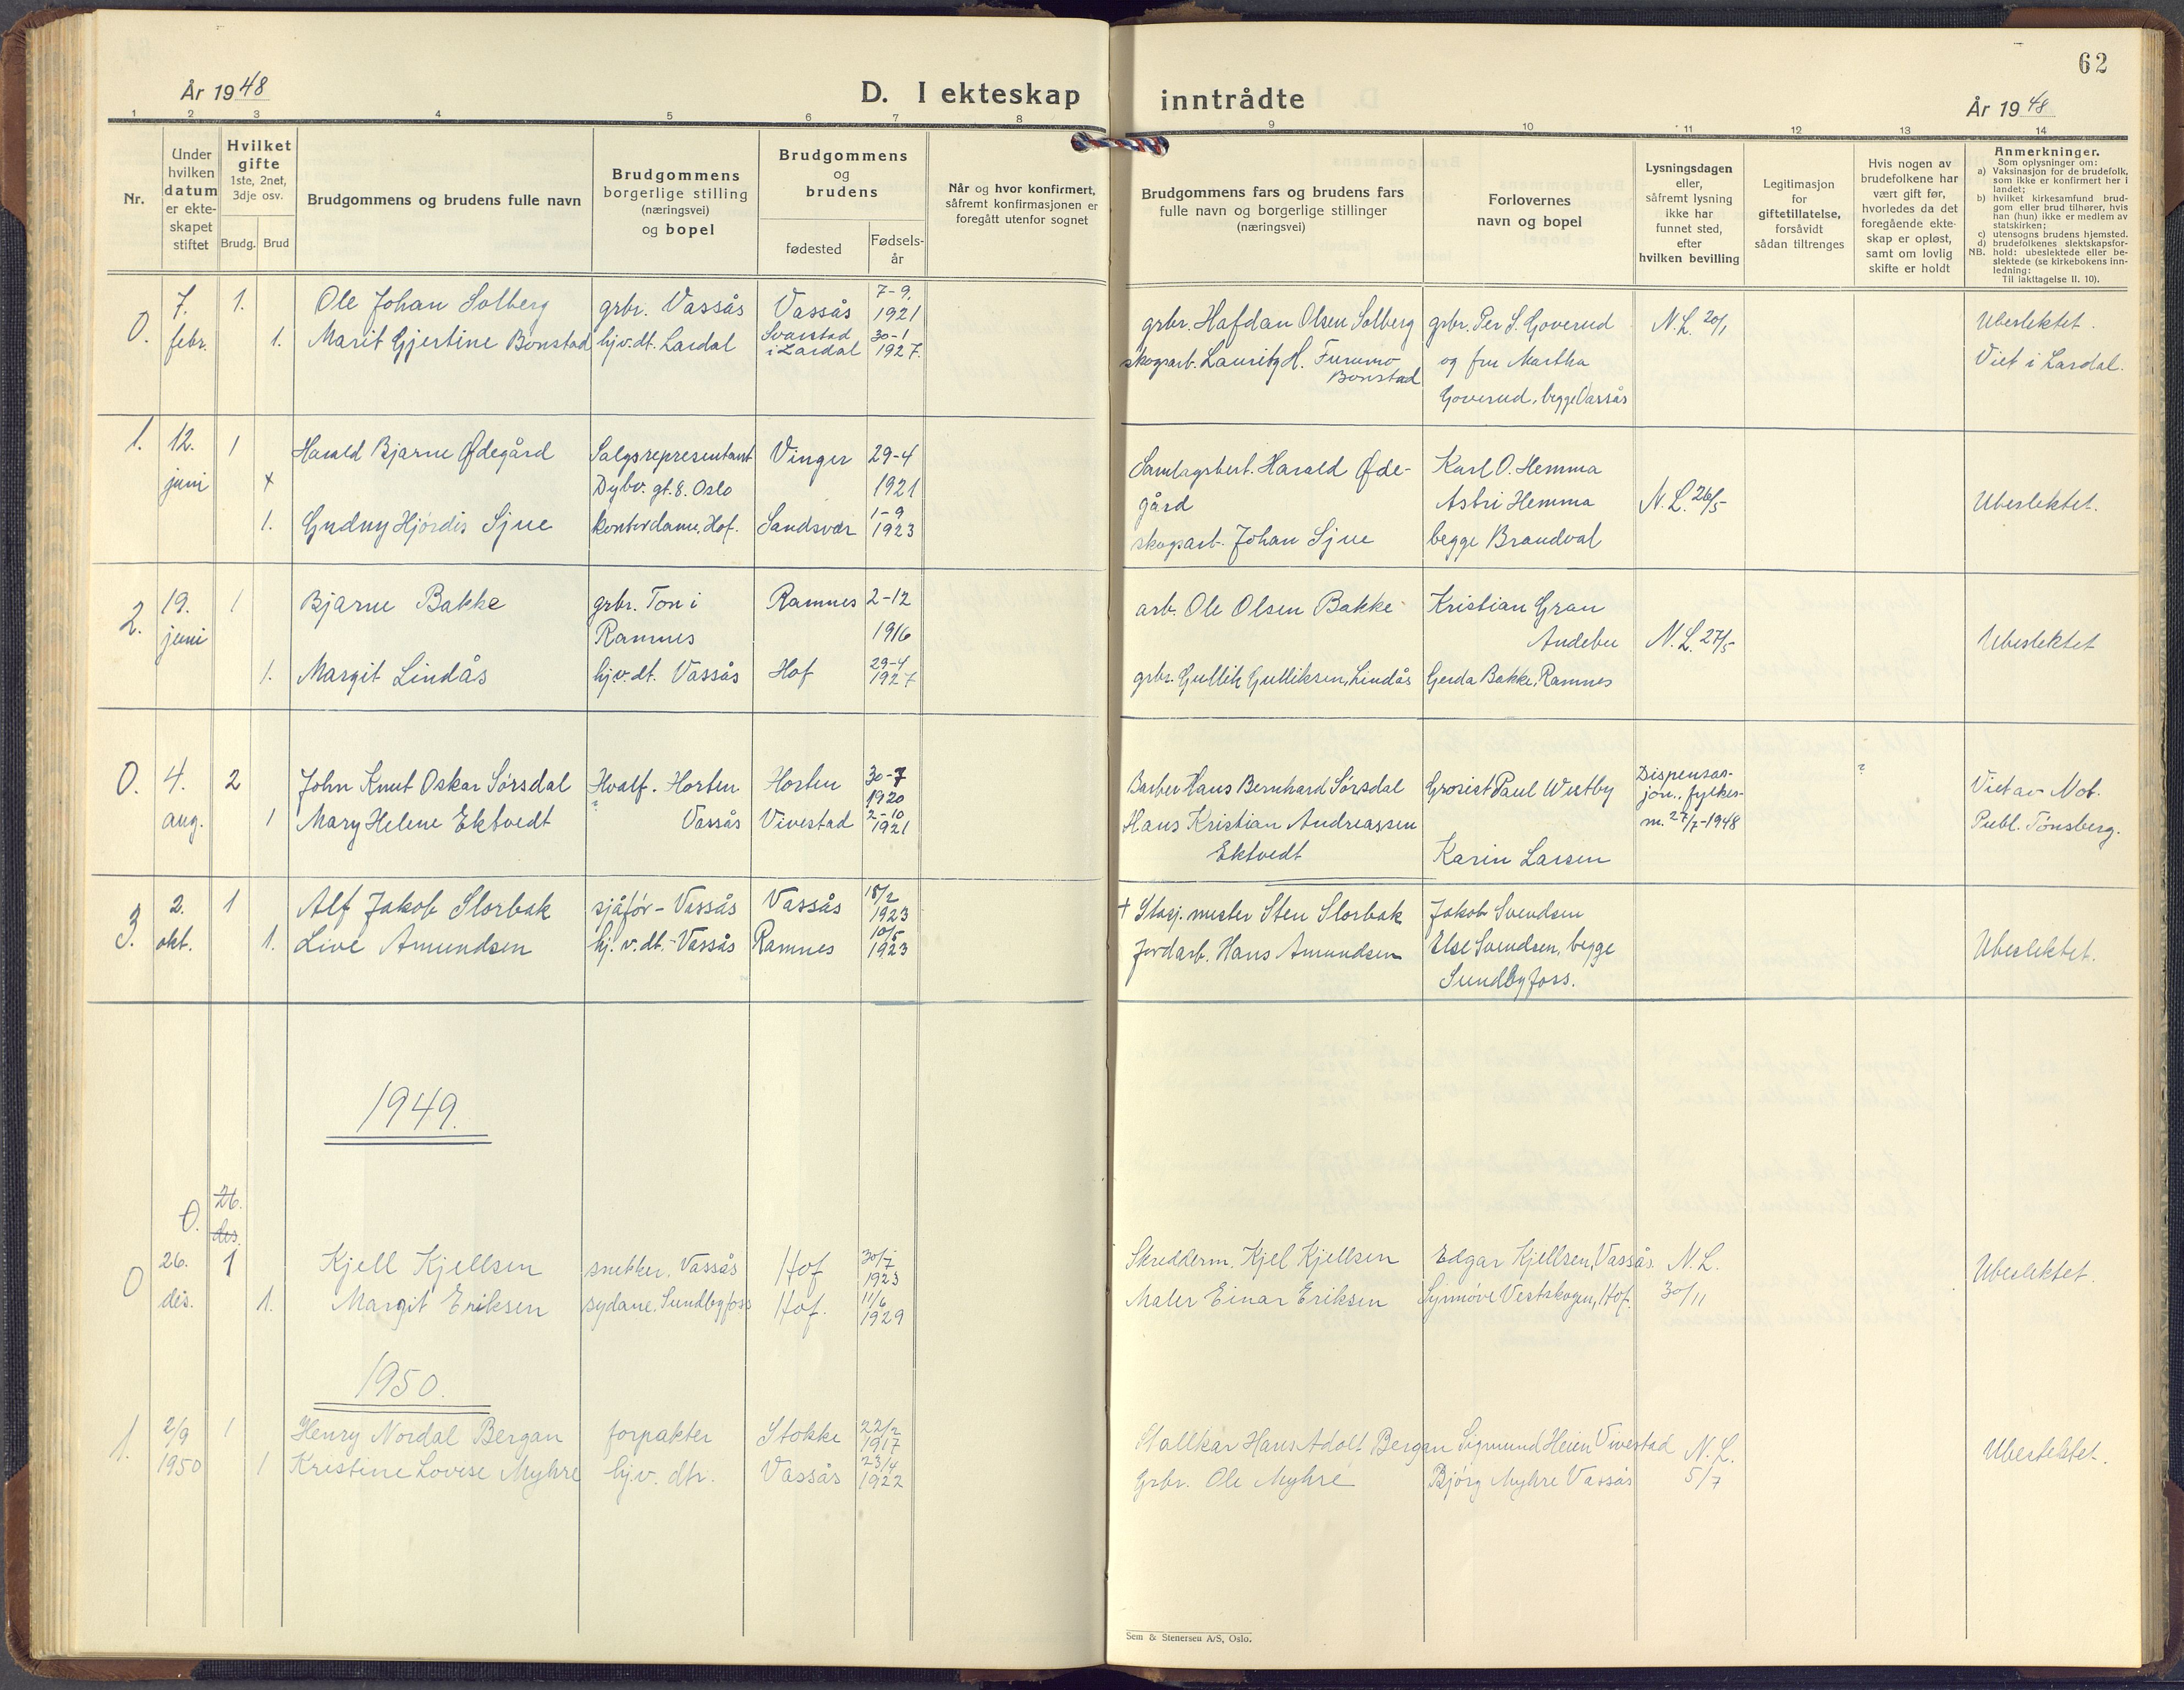 62
År 1948
D. I ekteskap inntrådte
År 1948
1 2 3 4 5 6 7 8 9 10 11 12 13 14
Nr.
Under
hvilken
datum
er ekte-
skapet
stiftet
Hvilket
gifte
1ste, 2net,
3dje osv.
Brudg. Brud
Brudgommens og brudens fulle navn
Brudgommens
borgerlige stilling
(næringsvei)
og bopel
Brudgommens
og
brudens
fødested
Fødsels-
år
Når og hvor konfirmert,
såfremt konfirmasjonen er
foregått utenfor sognet
Brudgommens fars og brudens fars
fulle navn og borgerlige stillinger
(næringsvei)
Forlovernes
navn og bopel
Lysningsdagen
eller,
såfremt lysning
ikke har
funnet sted,
efter
hvilken bevilling
Legitimasjon
for
giftetillatelse,
forsåvidt
sådan tiltrenges
Hvis nogen av
brudefolkene har
vært gift før,
hvorledes da det
foregående ekte-
skap er opløst,
samt om lovlig
skifte er holdt
Anmerkninger.
Som oplysninger om:
a) Vaksinasjon for de brudefolk,
som ikke er konfirmert her i
landet;
b) hvilket kirkesamfund brud-
gom eller brud tilhører, hvis
han (hun) ikke er medlem av
statskirken;
c) utensogns brudens hjemsted.
d) brudefolkenes slektskapsfor-
NB. hold: ubeslektede eller be-
slektede (se kirkebokens inn-
ledning:
Til iakttagelse II. 10).
0.
7.
febr.
1.
1.
Ole Johan Solberg
Marit Gjertine Bonstad
grbr. Vassås
hjv.dt. Lardal
Vassås
Svarstad
i Lardal
7-9.
1921
30-1
1927.
grbr. Hafdan Olsen Solberg
skogsarb. Lauritz H. Furumo
Bonstad
grbr. Per S. Goverud
og fru Martha
Goverud, begge Vassås
N.L. 20/1
Ubeslektet.
Viet i Lardal.
1.
12.
juni
1
x
1.
Harald Bjarne Ødegård
Gudny Hjørdis Sjue
Salgsrepresentant
Dybv. gt. 8. Oslo
kontordame, Hof.
Vinger
Sandsvær
29-4
1921
1-9
1923
Samlagsbest. Harald Øde-
gård
skogsarb. Johan Sjue
Karl O. Hemma
Astri Hemma
begge Brandval
N.L. 26/5
Ubeslektet.
2.
19.
juni
1
1.
Bjarne Bakke
Margit Lindås
grbr. Ton i
Ramnes
hjv.dt. Vassås
Ramnes
Hof
2-12
1916
29-4
1927
arb. Ole Olsen Bakke
grbr. Gullik Gulliksen, Lindås
Kristian Gran
Andebu
Gerda Bakke, Ramnes
N.L. 27/5
Ubeslektet
0.
4.
aug.
2
1
John Knut Oskar Sørsdal
Mary Helene Ektvedt
Hvalf. Horten
?
Vassås
Horten
Vivestad
30-7
1920
2-10
1921
Barber Hans Bernhard Sørsdal
Hans Kristian Andreassen
Ektvedt
Grosist Paul Westby
Karin Larsen
Dispensas-
jon., fylkes-
m. 27/7-1948
?
Viet av Not.
Publ. Tønsberg.
3.
2.
okt.
1
1.
Alf Jakob Slorbak
Live Amundsen
sjåfør - Vassås
hj.v.dt. - Vassås
Vassås
Ramnes
18/2
1923
10/5
1923
+ Stasj. mester Sten Slorbak
Jordarb. Hans Amundsen
Jakob Svendsen
Else Svendsen, begge
Sundbyfoss.
Ubeslektet.
1949.
0.
26.
des.
0
26.
des.
1
1.
Kjell Kjellsen
Margit Eriksen
snekker, Vassås
sydame, Sundbyfoss
Hof
Hof.
30/7
1923
11/6
1929
Skredderm. Kjel Kjellsen
Maler Einar Eriksen
Edgar Kjellsen, Vassås.
Synnøve Vestskogen, Hof.
N.L.
30/11
Ubeslektet.
1950.
1.
2/9
1950
1
1
Henry Nordal Bergan
Kristine Lovise Myhre
forpakter
hj.v. dtr.
Stokke
Vassås
22/2
1917
23/4
1922
Stallkar Hans Adolt Bergan
Grbr. Ole Myhre
Sigmund Heien Vivestad
Bjørg Myhre Vassås
N.L.
5/7
Ubeslektet.
Sem & Stenersen A/S, Oslo.